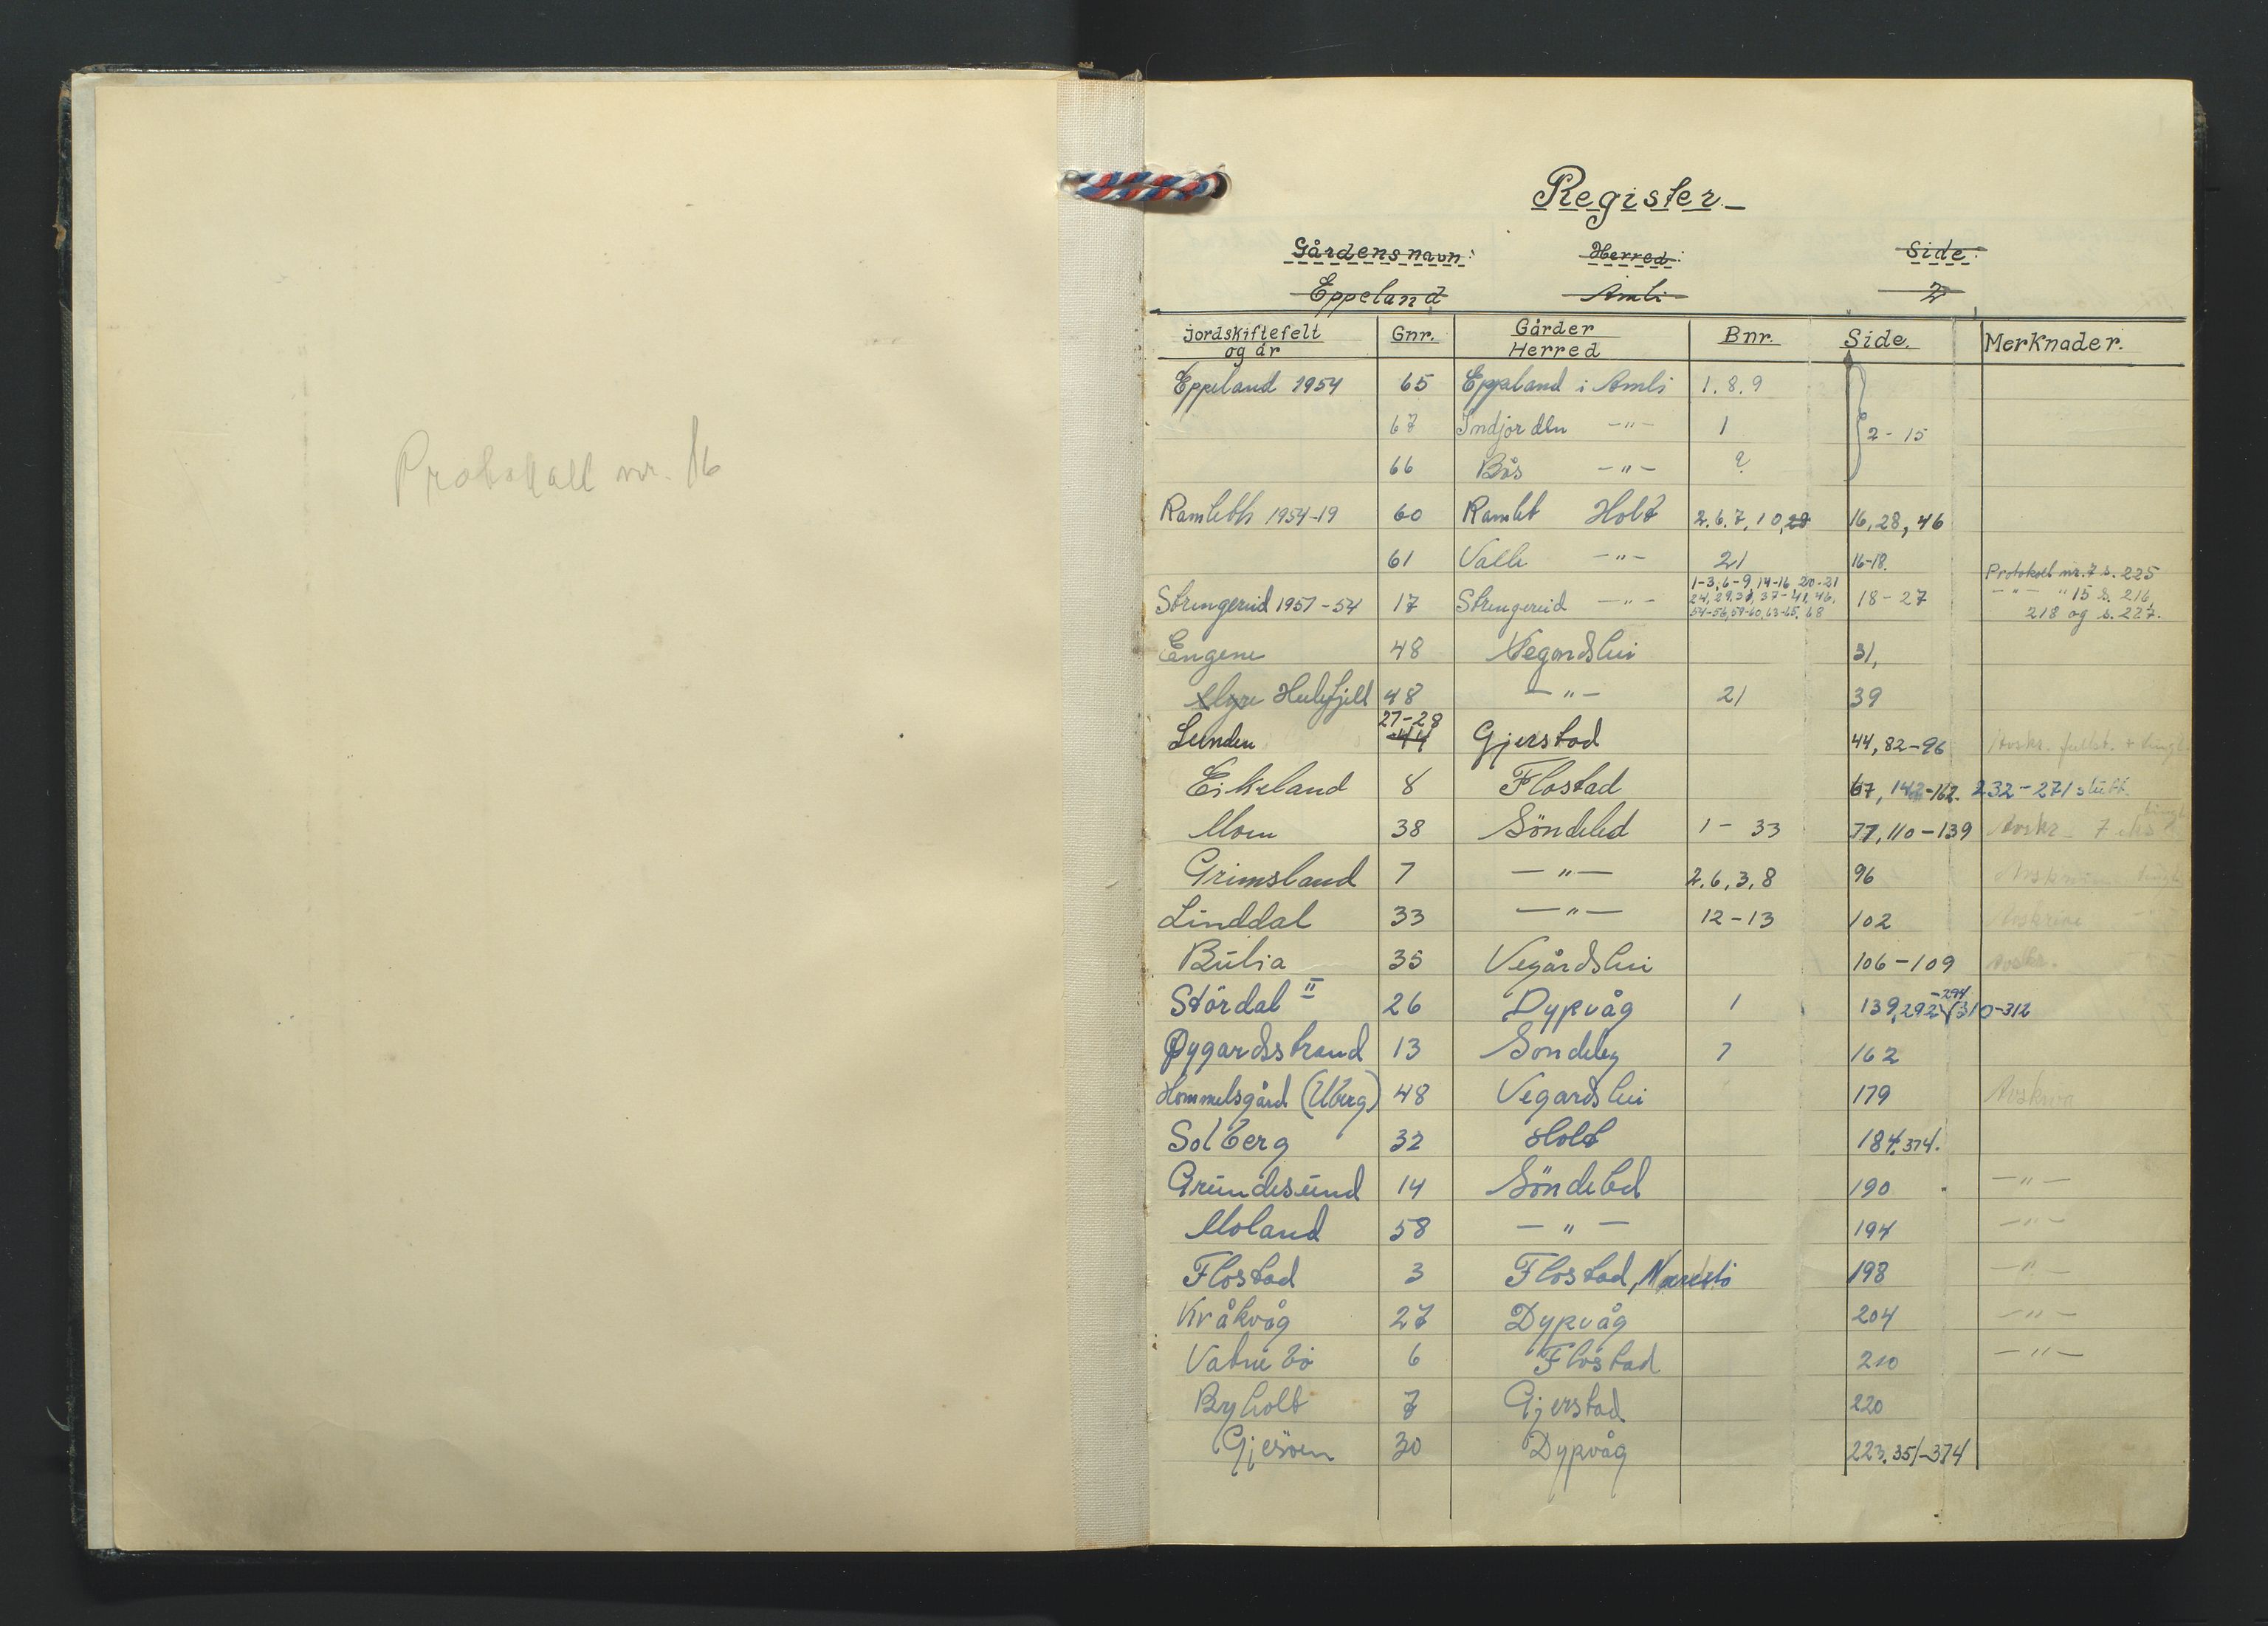 Protokoll nr. 16
Register
Gårdensnavn: Herred: Side:
Eppeland Åmli 2
Jordskiftefelt og år Gnr. Gårder Herred Bnr. Side. Merknader.
Eppeland 1954 65 Eppeland i Åmli 1.8.9
67 Indjorden -"- 1 2-15
66 Bås -"- ?
Ramleth 1954-19 60 Ramlet Holt 2.6.7,10,20 16,28,46
61 Valle -"- 21 16-18.
Strengereid 1951-54 17 Strengereid -"- 1-3,6-9,14-16,20-21 18-27 Protokoll nr. 7 s. 225
24,29,31,37-41,46, -"- "15 s. 216,
54-56,59-60,63-65,68 218 og s. 227.
Engene 48 Vegårdshei 31,
Hulefjell 48 -"- 21 39
27-28
Lunden 44 Gjerstad 44, 82-96 Avskr. fullst. + tingl.
Eikeland 8 Flostad 67, 142-162. 232-271 slutt.
Moen 38 Söndeled 1-33 77, 110-139 Avskr.
Grimsland 7 -"- 2,6,3,8 96
Linddal 33 -"- 12-13 102
Bulia 35 Vegårdshei 106-109 Avskr.
Stördal II 26 Dypvåg 1 139,292-294,310-312
Øygardsstrand 13 Søndeled 7 162
Hommelsgård (Uberg) 48 Vegardshei 179
Solberg 32 Holt 184,374.
Grundesund 14 Söndeled 190 -"-
Moland 58 -"- 194 -"-
Flostad 3 Flostad, Narestö 198 -"-
Kråkvåg 27 Dypvåg 204 -"-
Vatnebö 6 Flostad 210 -"-
Byholt 7 Gjerstad 220
Gjesöen 30 Dypvåg 223,351-374